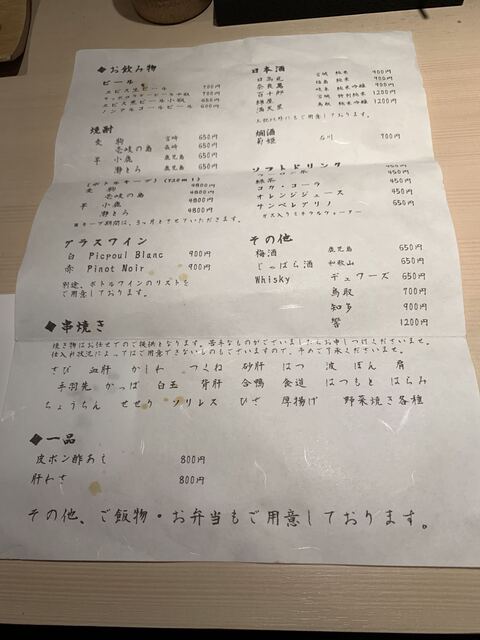 ◆お飲み物
ビール
エビス生ビール 700円
700円
エビス黒ビール小瓶 650円
ノンアルコールビール 600円
焼酎
麦 駒 宮崎 650円
壱岐の島 長崎 650円
芋 小鹿 鹿児島 650円
灘とろ 鹿児島 650円
(ボトルキープ)(720ml)
麦 駒 4800円
壱岐の島 4800円
芋 小鹿 4800円
灘とろ 4800円
※キープ期間は、3ヶ月とさせていただきます。
グラスワイン
白 Picpoul Blanc 900円
赤 Pinot Noir 900円
別途、ボトルワインのリストを
ご用意しております。
日本酒
日高見 宮城 純米 900円
奈良萬 福島 純米 900円
百十郎 岐阜 純米吟醸 900円
宮城 特別純米 1200円
満天星 鳥取 純米吟醸 1200円
上記以外にもご用意しております。
燗酒
菊姫 石川 700円
ソフトドリンク
450円
緑茶 450円
コカ・コーラ 450円
オレンジジュース 450円
サンペレグリノ 650円
ガス入りミネラルウォーター
その他
梅酒 鹿児島 650円
じゃばら酒 和歌山 650円
Whisky デュワーズ 650円
鳥取 700円
知多 900円
響 1200円
◆串焼き
焼き物はお任せでのご提供となります。苦手なものがございましたらお申しつけくださいませ。
仕入れ状況によってはご用意できないものもございますので、予めご了承くださいませ。
さび 血肝 かしわ つくね 砂肝 はつ 波 ぼん 肩
手羽先 かっぱ 白玉 背肝 合鴨 食道 はつもと はらみ
ちょうちん せせり ソリレス ひざ 厚揚げ 野菜焼き各種
◆一品
皮ポン酢あえ 800円
肝わさ 800円
その他、ご飯物・お弁当もご用意しております。